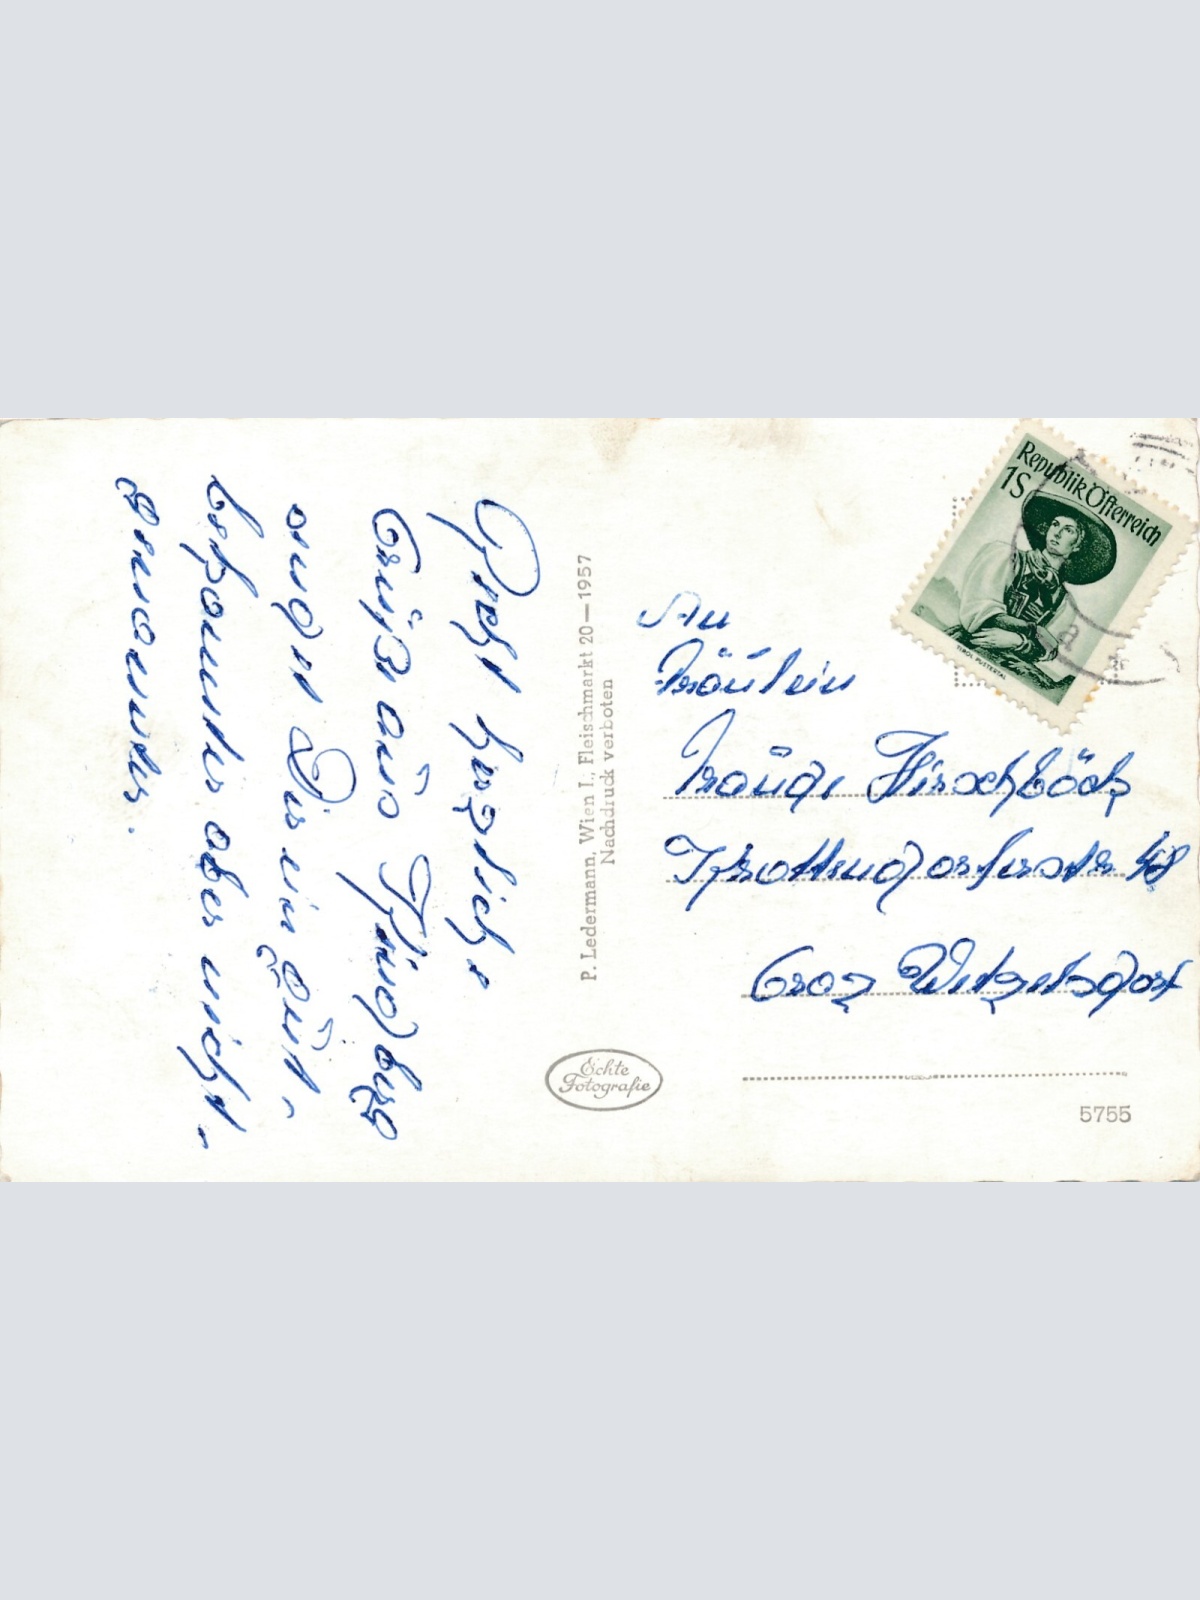 Recht herzliche
Grüße aus Thüdburg
sendet Dir ein Gut-
bekannter aber nicht-
Genannter.
P. Ledermann, Wien I., Fleischmarkt 20—1957
Nachdruck verboten
Echte
Fotografie
Republik Österreich
1S
TIROL PUSTERTAL
An
Fräulein
Traudi Hirschböck
Krottendorferstr 48
Graz Wetzelsdorf
5755